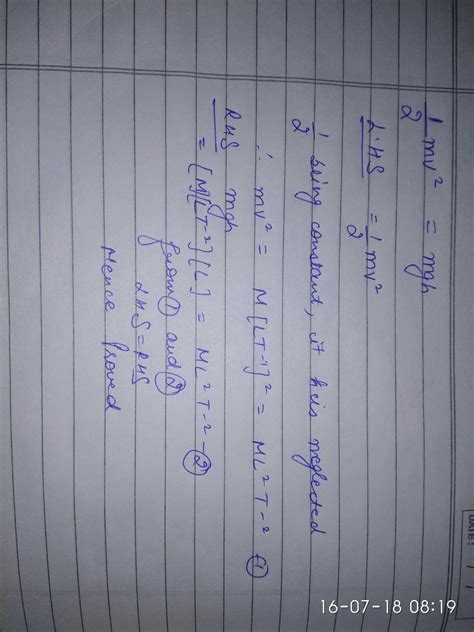 1/2 mv² = mgh
L.HS = 1/2 mv²
1/2 being constant, it is neglected
∴ mv² = M[LT-1]² = ML²T-² ①
RHS mgh
= [M][LT-2][L] = ML²T-² -②
from ① and ②
LHS = RHS
Hence proved
DATE: / /
16-07-18 08:19